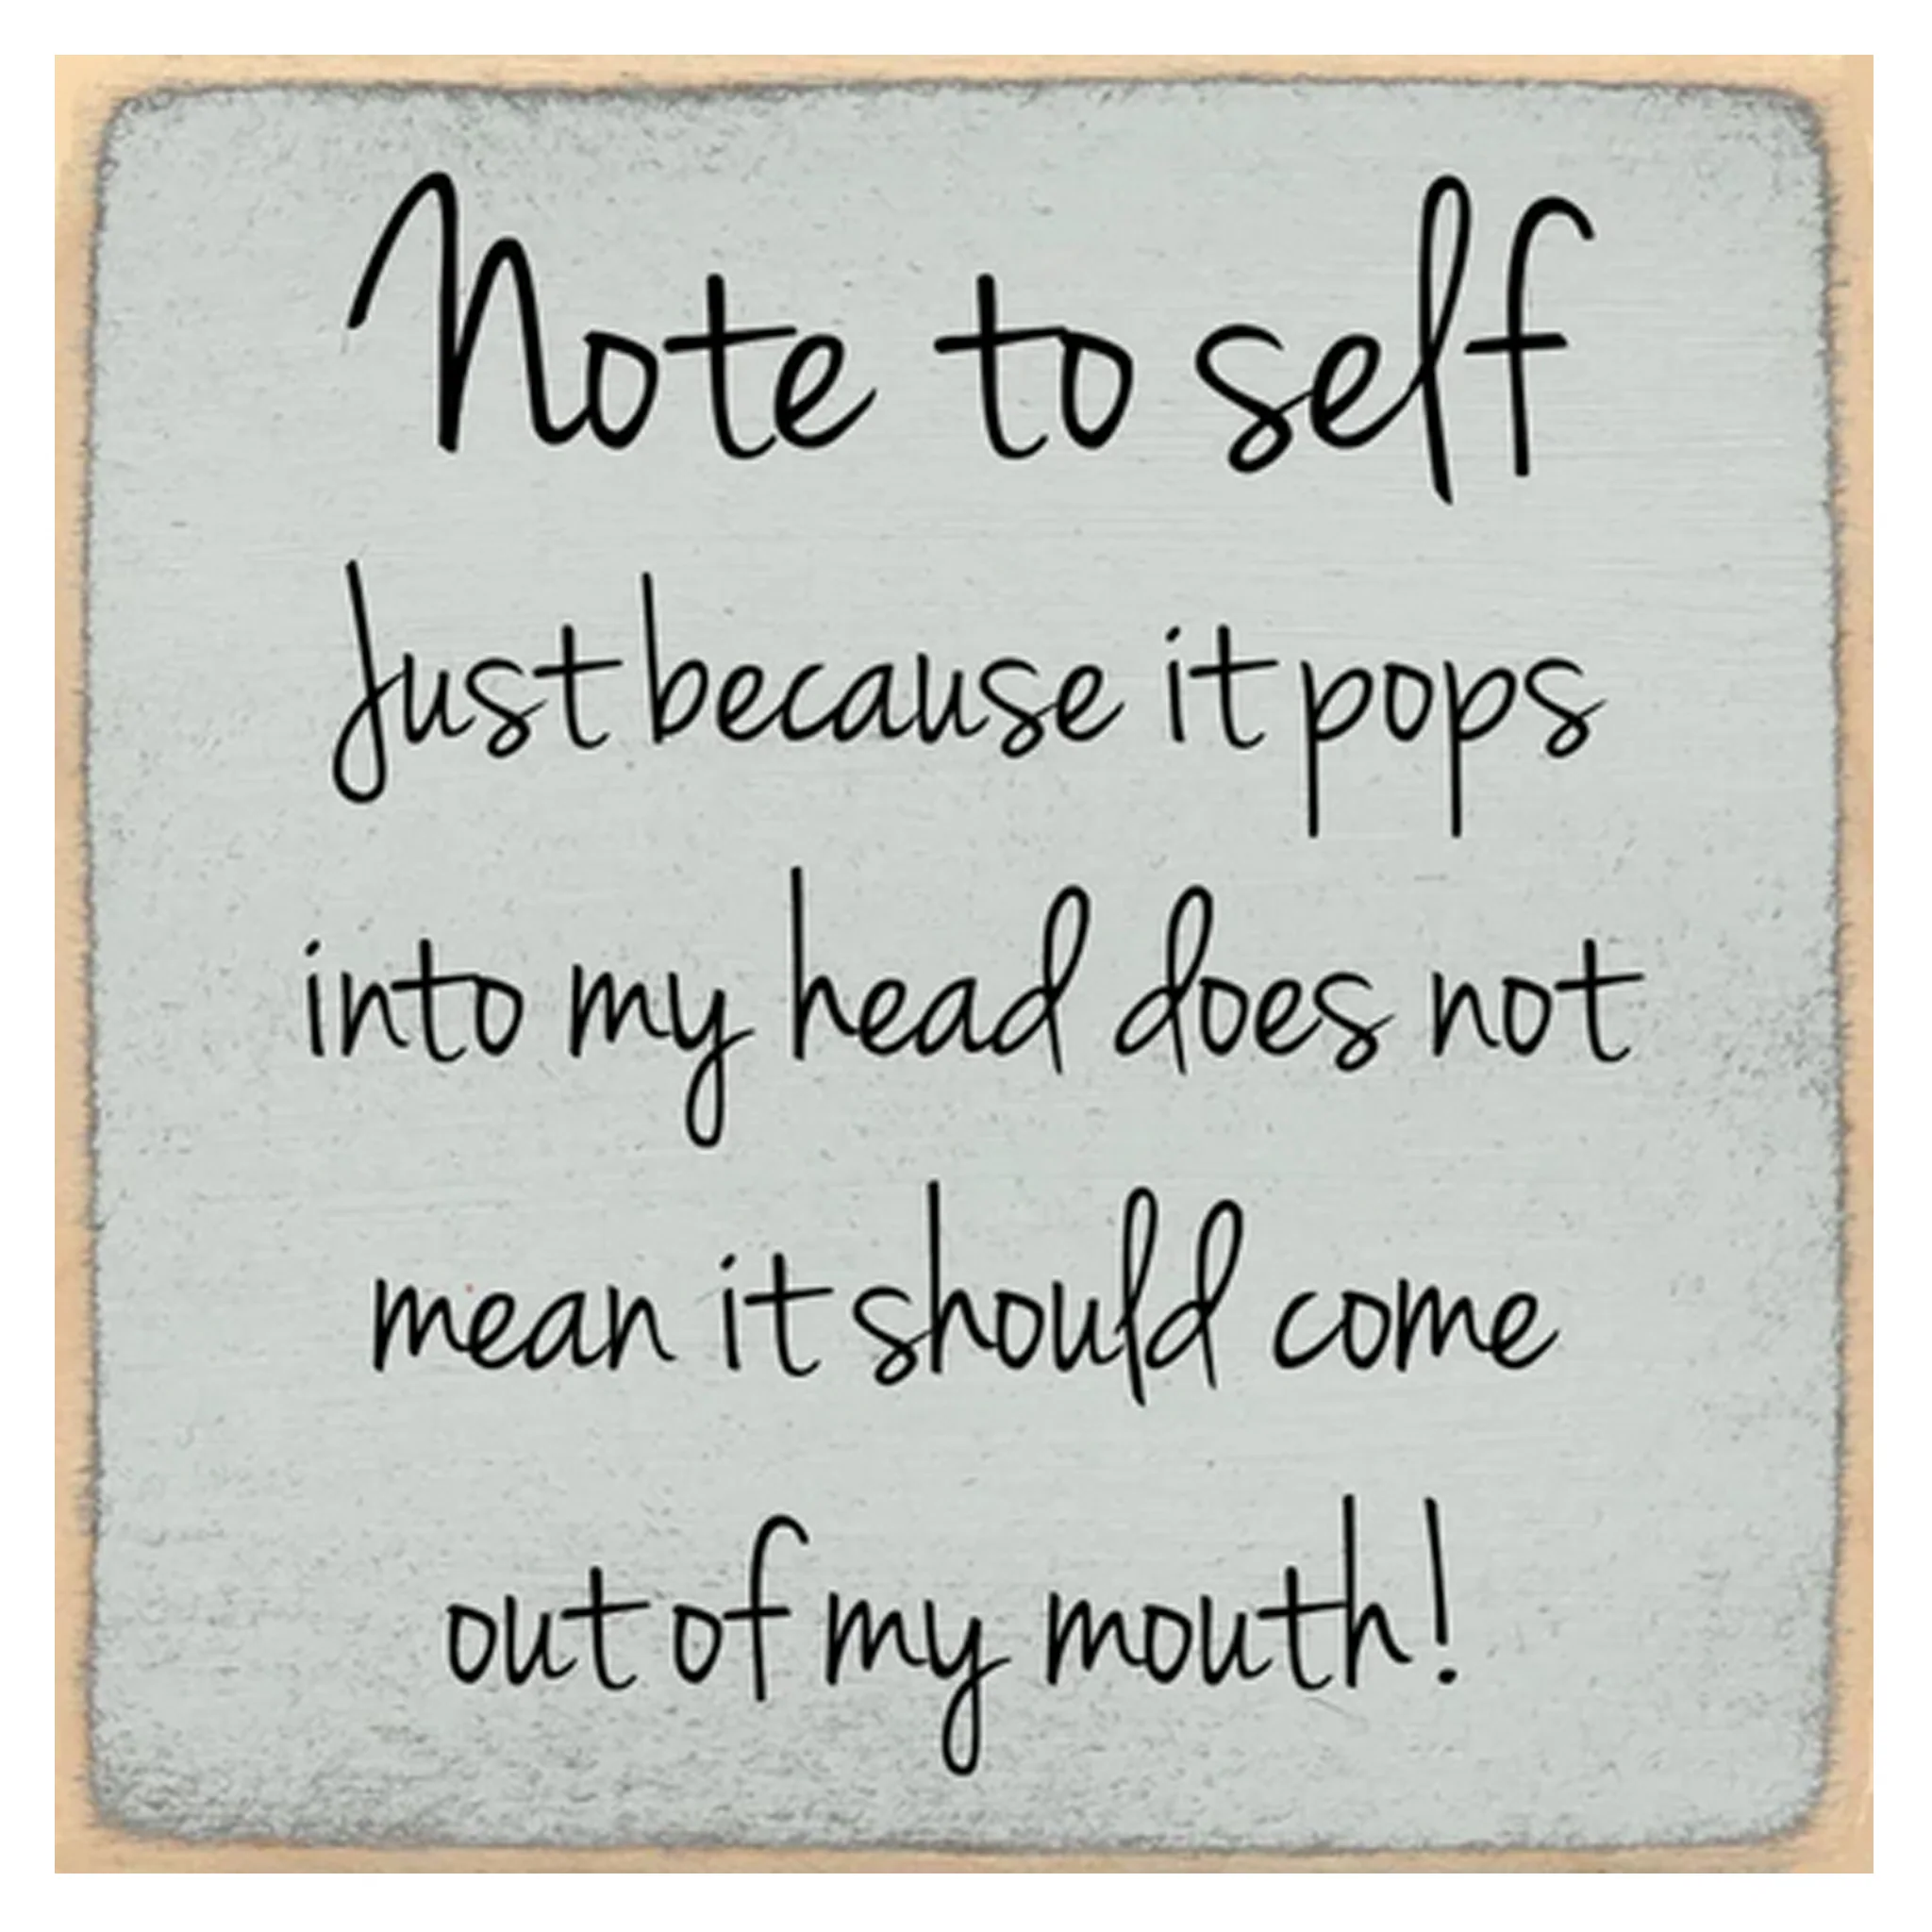 Note to self
Just because it pops
into my head does not
mean it should come
out of my mouth!